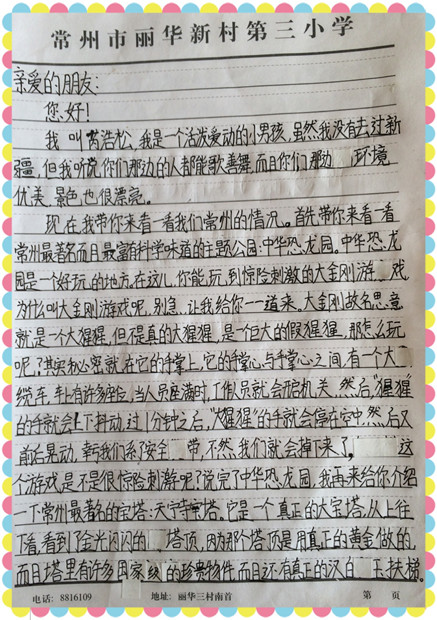 常州市丽华新村第三小学
亲爱的朋友:
您好!
我叫芮浩松,我是一个活泼爱动的小男孩,虽然我没有去过新
疆,但我听说你们那边的人都能歌善舞,而且你们那边 环境
优美,景色也很漂亮。
现在我带你来看一看我们常州的情况。首先带你来看一看
常州最著名而且最富有科学味道的主题公园:中华恐龙园。中华恐龙
园是一个好玩的地方,在这儿,你能玩到惊险刺激的大金刚游 戏
为什么叫大金刚游戏呢,别急,让我给你一一道来。大金刚故名思意
就是一个大猩猩,但不是真的大猩猩,是一个巨大的假猩猩,那怎么玩
呢,其实秘密就在它的手掌上,它的手掌心与手掌心之间,有一个大
缆车,车上有许多座位,当人员坐满时,工作员就会开启机关,然后,"猩猩"
的手就会上下抖动,过1分钟之后,"大猩猩"的手就会停在空中,然后又
前后晃动,幸亏我们系了安全 带,不然,我们就会掉下来了, 这
个游戏是不是很惊险刺激呢?说完了中华恐龙园,我再来给你介绍
一下常州最著名的宝塔:天宁寺宝塔。它是一个真正的大宝塔,从上往
下看,看到了金光闪闪的 塔顶,因为那个塔顶是用真正的黄金做的,
而且塔里有许多国家级的珍贵物件,而且还有真正的汉白 玉扶梯。
电话:8816109 地址:丽华三村南首 第 页